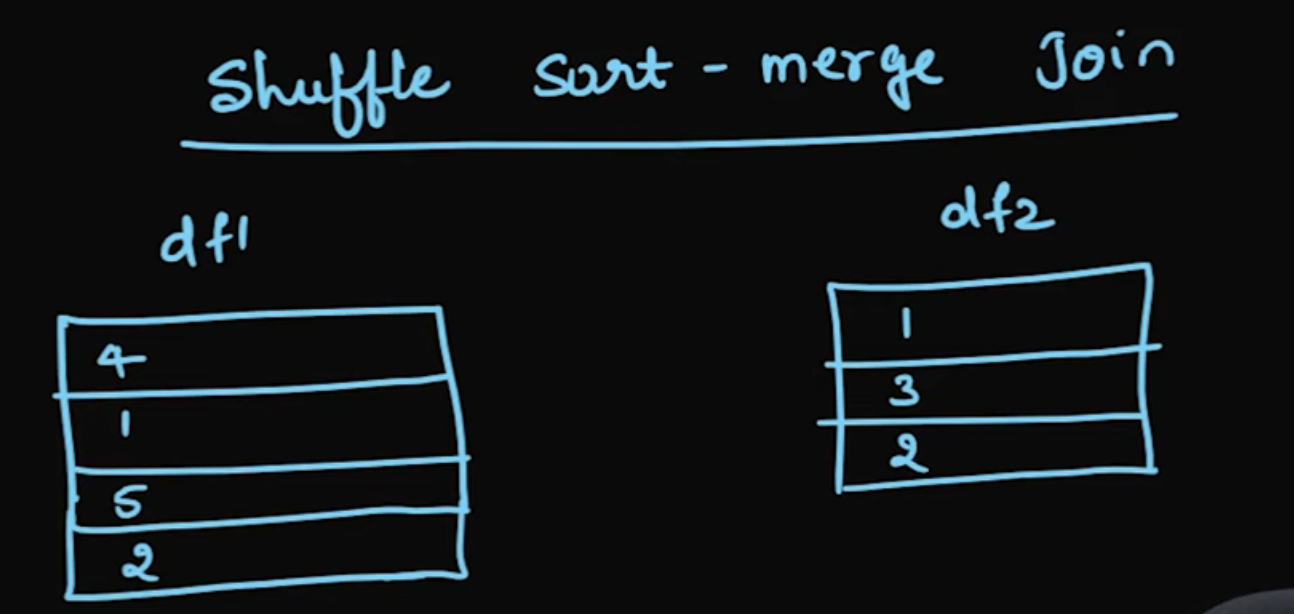 Shuffle Sort - merge Join
df1
df2
4
1
5
2
1
3
2